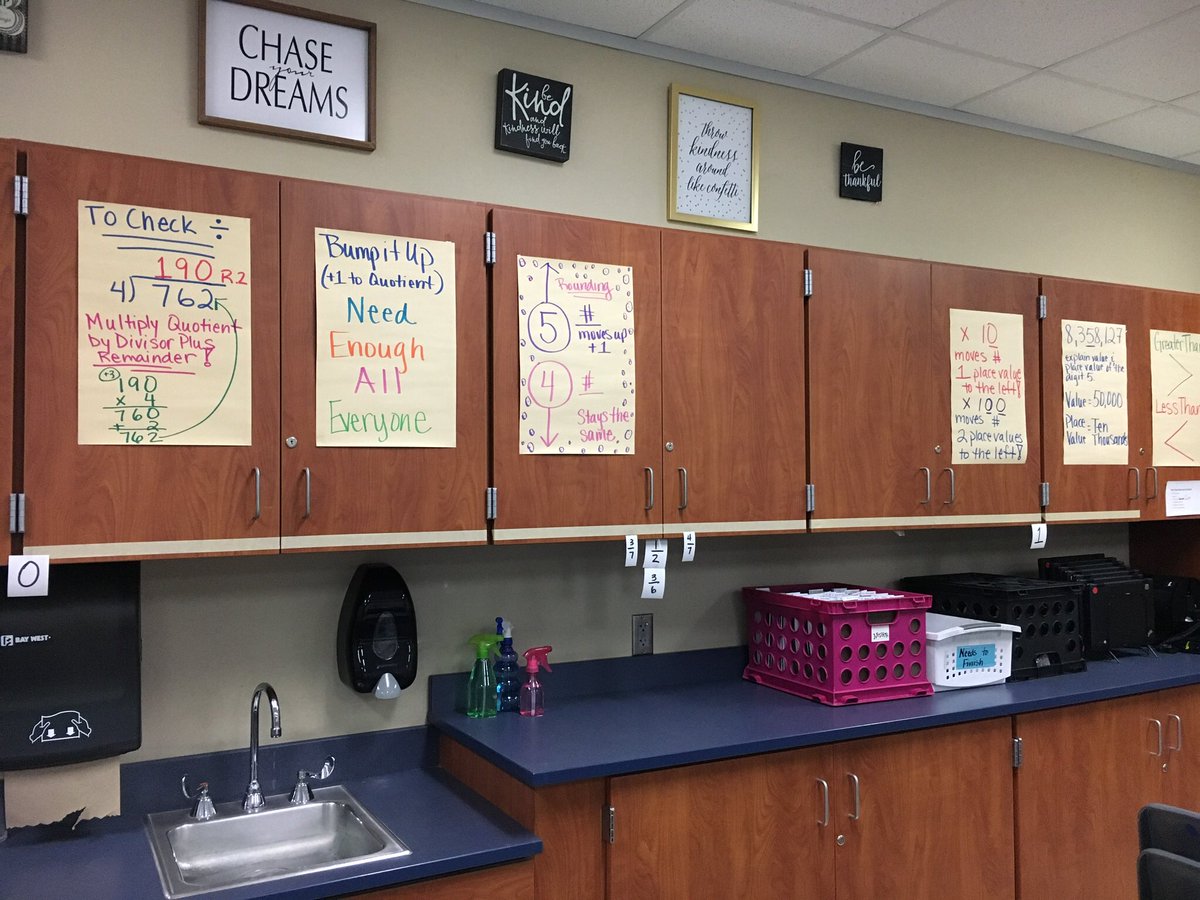 CHASE
your
DREAMS
be
Kind
and
kindness will
find you back
throw
kindness
around
like confetti
be
thankful
To Check ÷
190 R.2
4)762
Multiply Quotient
by Divisor Plus
Remainder!
+3
190
x 4
760
+ 2
762
Bump it Up
(+1 to Quotient)
Need
Enough
All
Everyone
Rounding
5
#
moves up
+1
4
#
Stays the
same
x 10
moves #
1 place value
to the left!
x 100
moves #
2 place values
to the left!
8,358,127
explain value &
place value of the
digit 5.
Value = 50,000
Place = Ten
Value Thousands
Greater Than
>
Less Than
<
0
3/7
1/2
4/7
3/6
1
BAY WEST
Needs to
Finish